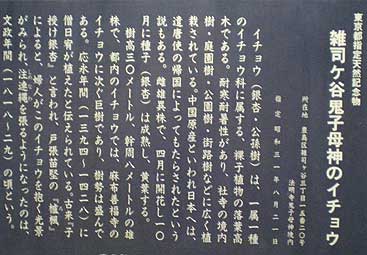 東京都指定天然記念物
雑司ケ谷鬼子母神のイチョウ
所在地 豊島区雑司ケ谷三丁目一五番二〇号
法明寺鬼子母神境内
指定 昭和三一年八月二一日
イチョウ(銀杏・公孫樹)は、一属一種
のイチョウ科に属する、裸子植物の落葉高
木である。耐寒耐暑性があり、社寺の境内
樹・庭園樹・公園樹・街路樹などに広く植
栽されている。中国原産といわれ日本へは、
遣唐使の帰国によってもたらされたという
説もある。雌雄異株で、四月に開花し一〇
月に種子(銀杏)は成熟し、黄葉する。
樹高三〇メートル、幹周八メートルの雄
株で、都内のイチョウでは、麻布善福寺の
イチョウに次ぐ巨樹であり、樹勢は盛んで
ある。応永年間(一三九四―一四二八)に
僧日宥が植えたと伝えられている。古来「子
授け銀杏」と言われ、戸張苗堅の『櫨楓』
によると、婦人がこのイチョウを抱く光景
がみられ、注連縄を張るようになったのは、
文政年間(一八一八〜二九)の頃という。